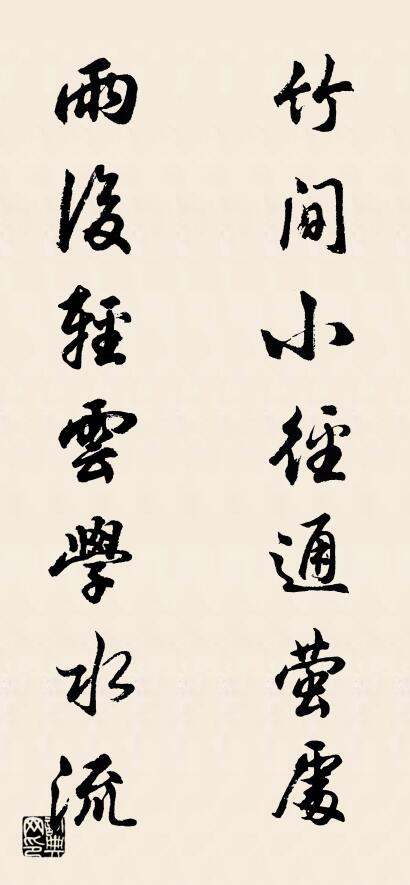 竹间小径通萤處
雨後輕雲學水流